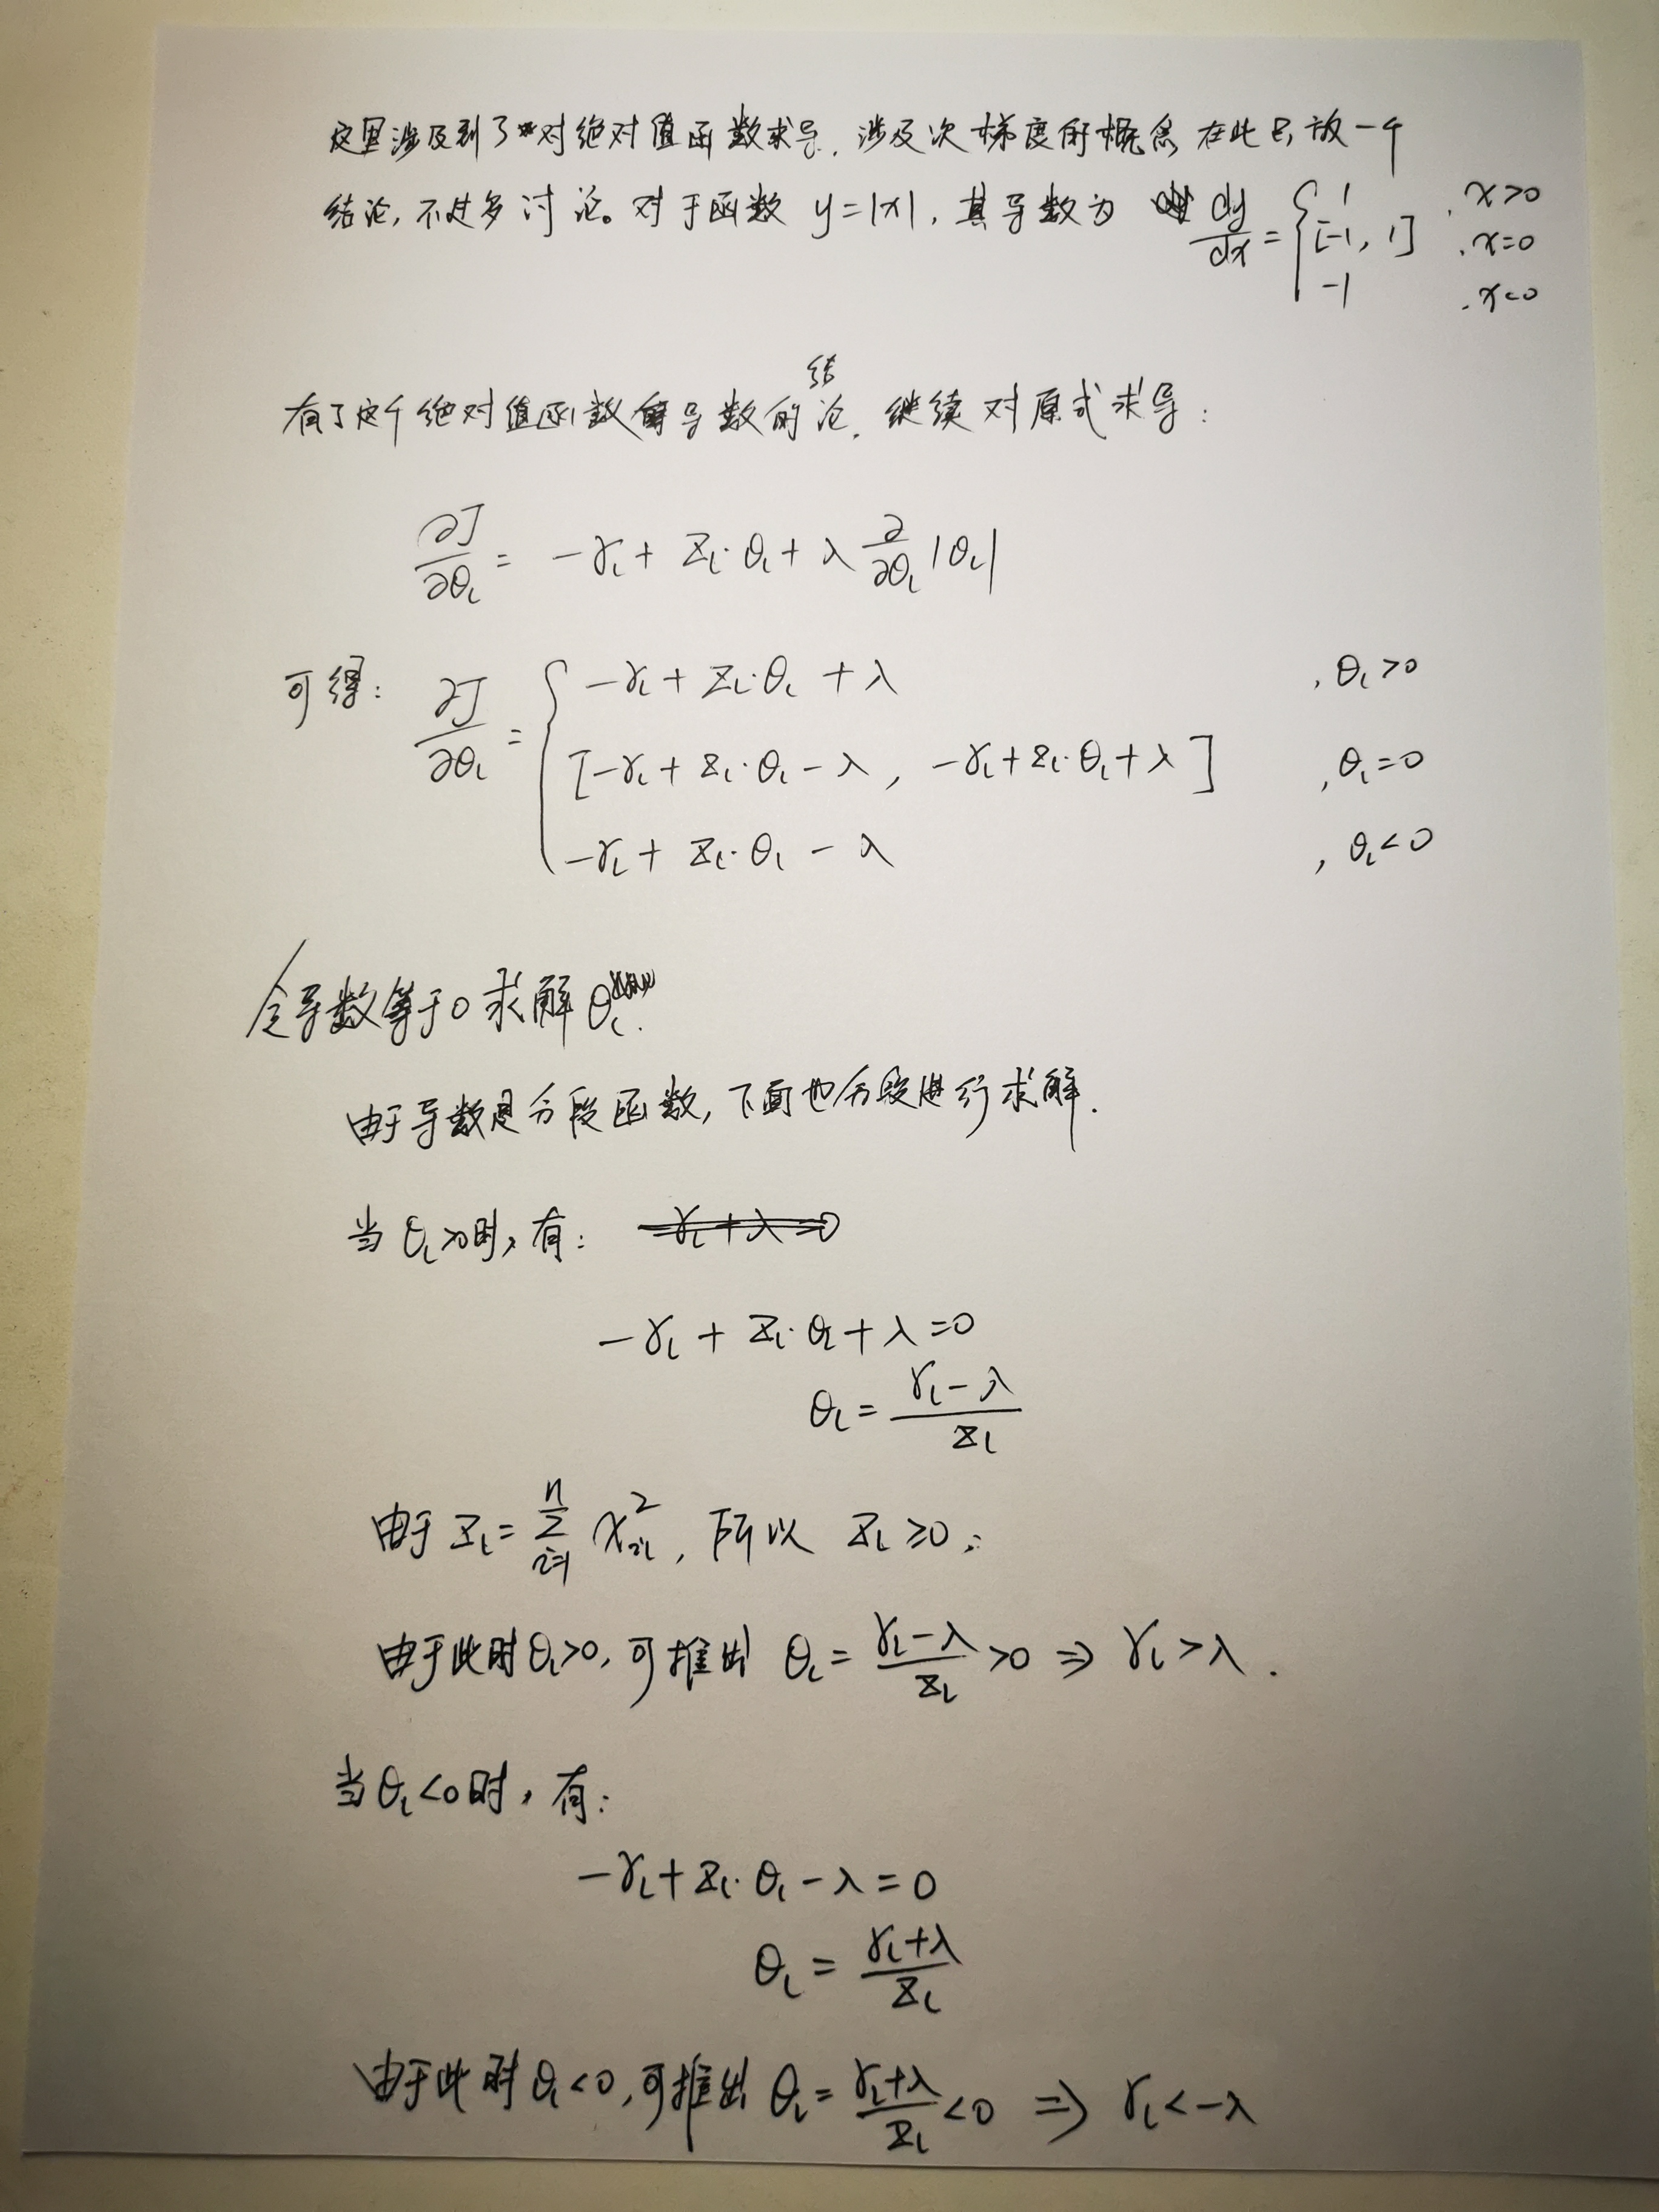 这里涉及到了对绝对值函数求导,涉及次梯度的概念 在此只放一个
结论,不过多讨论。对于函数 y=|x|,其导数为 dy/dx = { 1 , x>0
[-1, 1] , x=0
-1 , x<0
有了这个绝对值函数导数的结论,继续对原式求导:
∂J/∂θₗ = -γₗ + Zₗ·θₗ + λ ∂/∂θₗ |θₗ|
可得: ∂J/∂θₗ = { -γₗ + Zₗ·θₗ + λ , θₗ>0
[-γₗ + Zₗ·θₗ - λ , -γₗ + Zₗ·θₗ + λ] , θₗ=0
-γₗ + Zₗ·θₗ - λ , θₗ<0
令导数等于0求解θₗ.
由于导数是分段函数,下面也分段进行求解.
当θₗ>0时,有: -γₗ+λ=0
-γₗ + Zₗ·θₗ + λ = 0
θₗ = (γₗ - λ)/Zₗ
由于 Zₗ = Σⁿᵢ₌₁ xᵢₗ², 所以 Zₗ ≥ 0;
由于此时θₗ>0,可推出 θₗ = (γₗ - λ)/Zₗ > 0 ⇒ γₗ > λ.
当θₗ<0时,有:
-γₗ + Zₗ·θₗ - λ = 0
θₗ = (γₗ + λ)/Zₗ
由于此时θₗ<0,可推出 θₗ = (γₗ + λ)/Zₗ < 0 ⇒ γₗ < -λ